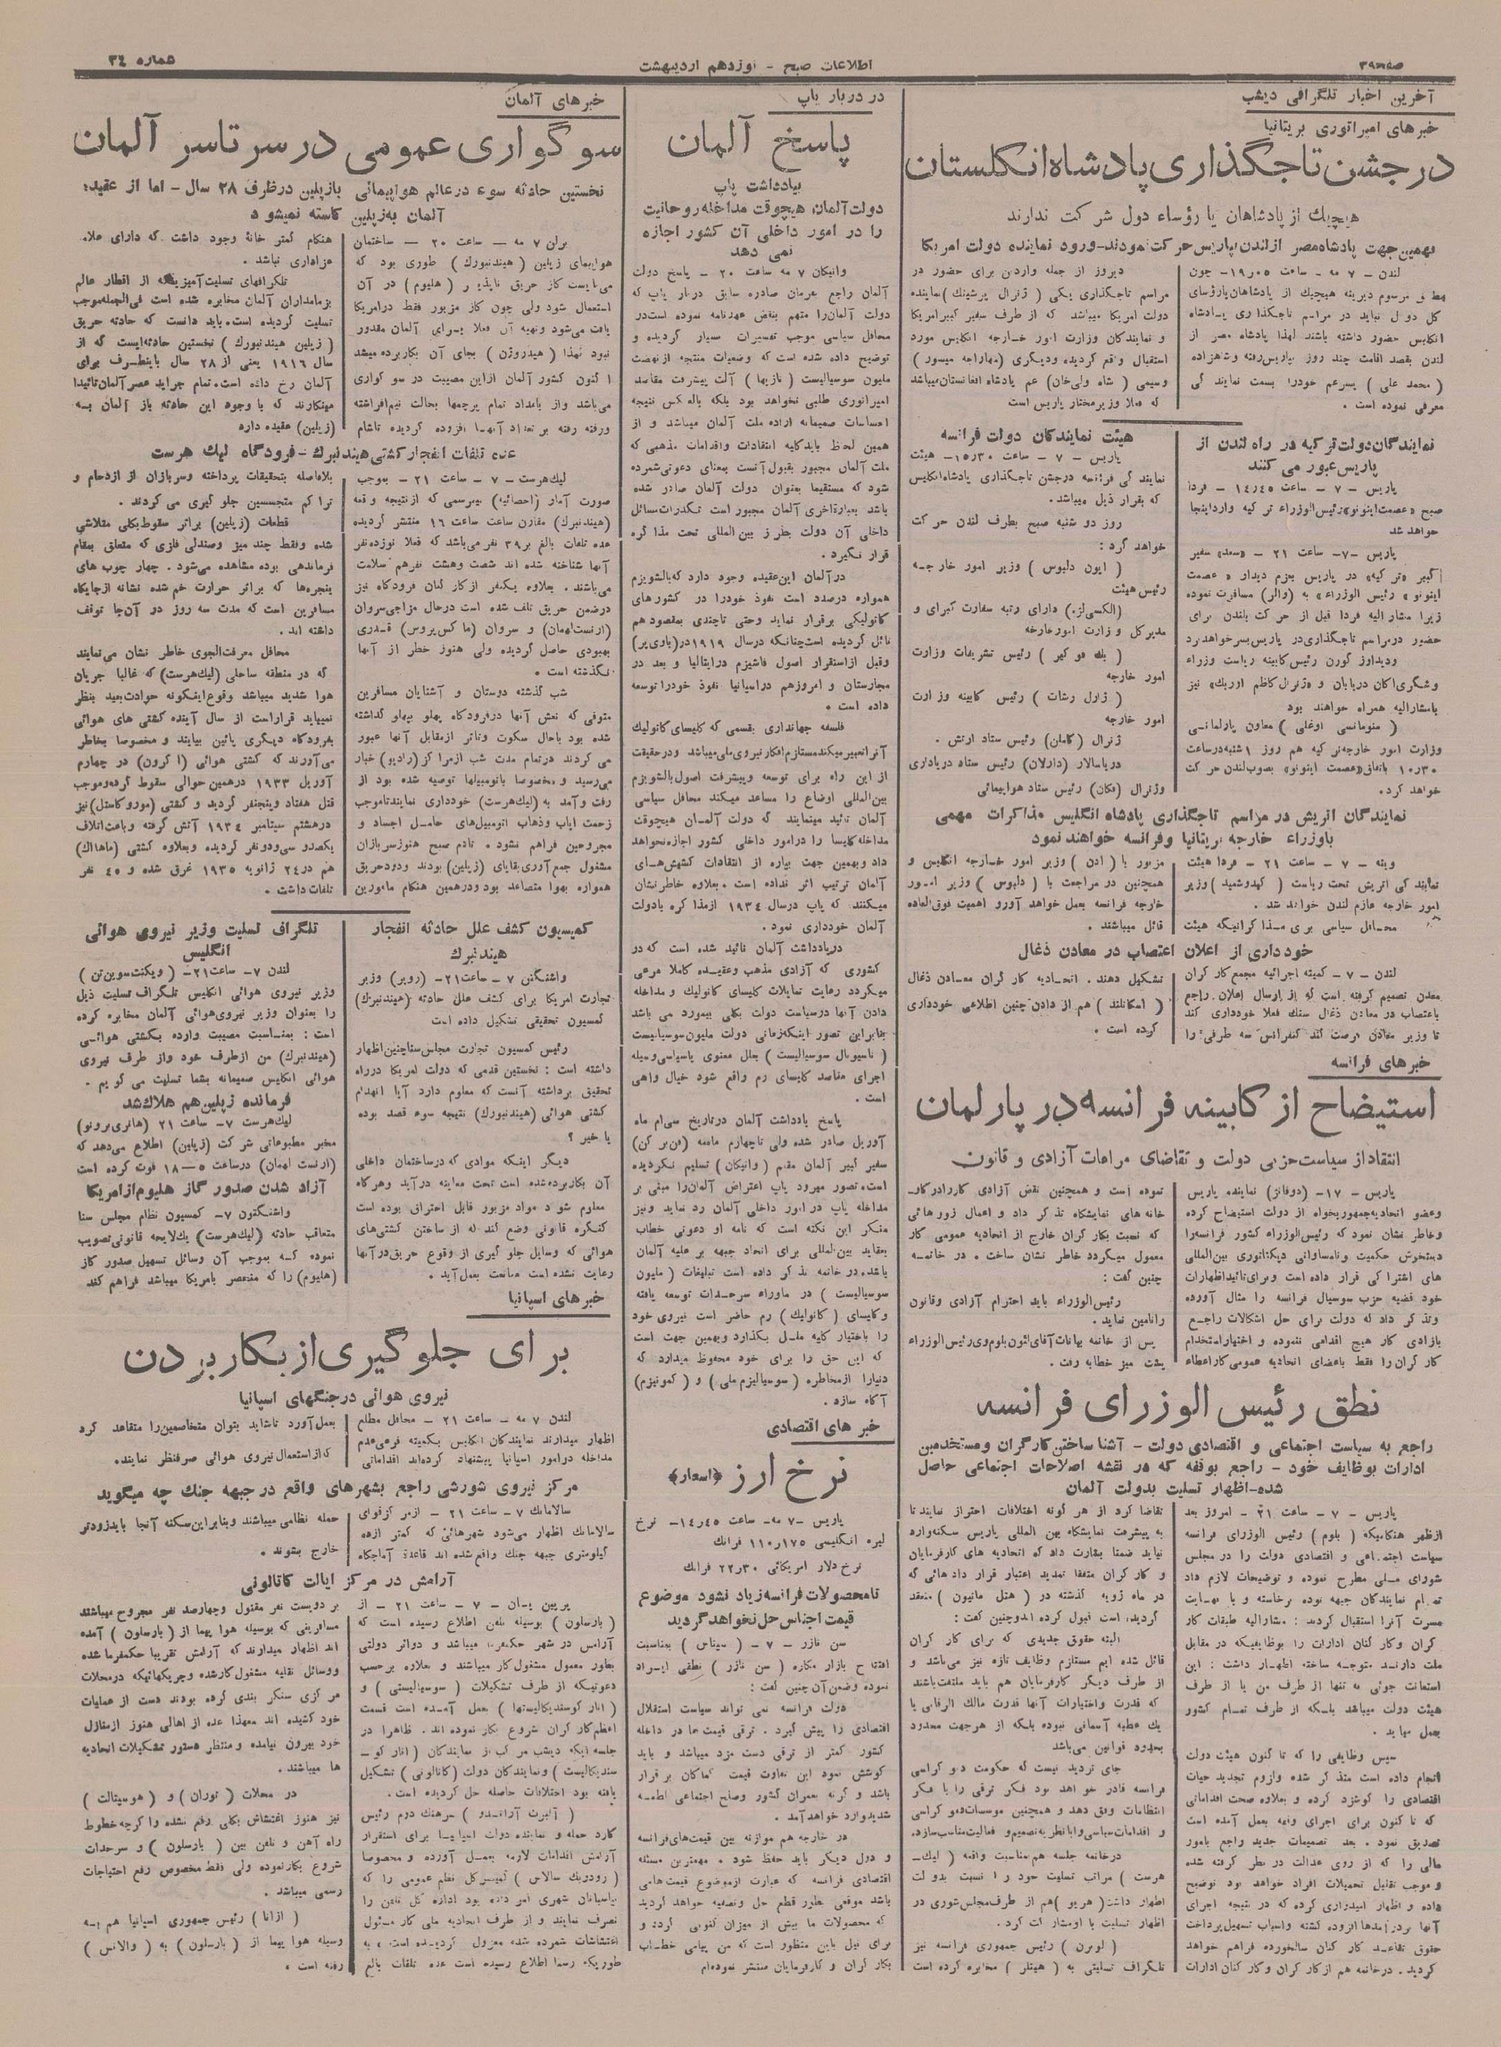 صفحه ۳۹
اطلاعات صبح - نوزدهم اردیبهشت
شماره ۳۴
آخرین اخبار تلگرافی دیشب
خبرهای امپراتوری بریتانیا
در جشن تاجگذاری پادشاه انگلستان
هیچیک از پادشاهان یا رؤساء دول شرکت ندارند
بهمین جهت پادشاه مصر از لندن بپاریس حرکت نمودند - ورود نماینده دولت امریکا
لندن - ۷ مه - ساعت ۱۹٫۰۵ - چون
کل دول نباید در مراسم تاجگذاری پادشاه
انگلیس حضور داشته باشند لهذا پادشاه مصر از
لندن بقصد اقامت چند روز بپاریس رفته و شاهزاده
( محمد علی ) پسرعم خود را بسمت نمایندگی
معرفی نموده است .
دیروز از جمله واردین برای حضور در
مراسم تاجگذاری یکی ( ژنرال پرشینگ ) نماینده
دولت امریکا میباشد که از طرف سفیر کبیر امریکا
و نمایندگان وزارت امور خارجه انگلیس مورد
استقبال واقع گردیده و دیگری ( مهاراجه میسور )
وسیمی ( شاه ولی‌خان ) عم پادشاه افغانستان میباشد
که فعلا وزیر مختار پاریس است
نمایندگان دولت ترکیه در راه لندن از
پاریس عبور می کنند
پاریس - ۷ - ساعت ۱۴٫۴۵ - فردا
صبح «عصمت اینونو» رئیس الوزراء ترکیه وارد اینجا
خواهد شد
پاریس - ۷ - ساعت ۲۱ - «سعد» سفیر
کبیر «ترکیه» در پاریس بعزم دیدار « عصمت
اینونو » رئیس الوزراء به (والر) مسافرت نموده
زیرا مشارالیه فردا قبل از حرکت بلندن برای
حضور در مراسم تاجگذاری در پاریس بسر خواهد برد
باشار الیه همراه خواهند بود
( منومانسی اوغلی ) معاون پارلمانی
وزارت امور خارجه ترکیه هم روز ۱ شنبه در ساعت
۱۰٫۳۰ باتفاق «عصمت اینونو» بصوب لندن حرکت
خواهد کرد .
هیئت نمایندگان دولت فرانسه
پاریس - ۷ - ساعت ۱۵٫۳۰ - هیئت
نمایندگی فرانسه در جشن تاجگذاری پادشاه انگلیس
که بقرار ذیل میباشد .
روز دو شنبه صبح بطرف لندن حرکت
خواهد کرد :
( ایون دلبوس ) وزیر امور خارجه
رئیس هیئت
(الکسی لژ) دارای رتبه سفارت کبرای و
مدیر کل وزارت امور خارجه
( بك فوکیر ) رئیس تشریفات وزارت
امور خارجه
( ژنرال رشات ) رئیس کابینه وزارت
امور خارجه
ژنرال (گاملن) رئیس ستاد ارتش .
دریاسالار (دارلان) رئیس ستاد دریاداری
وژنرال (فکان) رئیس ستاد هواپیمائی
نمایندگان اتریش در مراسم تاجگذاری پادشاه انگلیس مذاکرات مهمی
باوزراء خارجه بریتانیا وفرانسه خواهند نمود
وینه - ۷ - ساعت ۲۱ - فردا هیئت
نمایندگی اتریش تحت ریاست ( گیدوشمید ) وزیر
امور خارجه عازم لندن خواهد شد .
محافل سیاسی برای مذاکراتیکه هیئت
مزبور با ( ادن ) وزیر امور خارجه انگلیس و
همچنین در مراجعت با ( دلبوس ) وزیر امور
خارجه فرانسه بعمل خواهد آورد اهمیت فوق العاده
قائل میباشند .
خودداری از اعلان اعتصاب در معادن ذغال
لندن - ۷ - کمیته اجرائیه مجمع کارگران
معدن تصمیم گرفته است که از ارسال اعلان راجع
باعتصاب در معادن ذغال سنگ فعلا خودداری کند
تا وزیر معادن فرصت کند کنفرانس سه طرفی را
تشکیل دهند . اتحادیه کارگران معادن ذغال
( اسکاتلند ) هم از دادن چنین اطلاعی خودداری
کرده است .
خبرهای فرانسه
استیضاح از کابینه فرانسه در پارلمان
انتقاد از سیاست حزبی دولت و تقاضای مراعات آزادی و قانون
پاریس - ۱۷ - (دوفانژ) نماینده پاریس
وعضو اتحادیه جمهوریخواه از دولت استیضاح کرده
وخاطر نشان نمود که رئیس الوزراء کشور فرانسه را
دستخوش حکمیت ونامساواتی دیکتاتوری بین المللی
های اشتراکی قرار داده است وبرای تائید اظهارات
خود قضیه حزب سوسیال فرانسه را مثال آورده
وتذکر داد که دولت برای حل اشکالات راجع
بازادی کار هیچ اقدامی ننموده و اختیار استخدام
کارگران را فقط باعضای اتحادیه عمومی کار اعطاء
نموده است و همچنین نقض آزادی کار را در کار-
خانه های نمایشگاه تذکر داد و اعمال زورهائی
که نسبت بکارگران خارج از اتحادیه عمومی کار
معمول میگردد خاطر نشان ساخت . در خاتمه
چنین گفت :
رئیس الوزراء باید احترام آزادی وقانون
را تامین نماید .
پس از خاتمه بیانات آقای لئون بلوم وی رئیس الوزراء
پشت میز خطابه رفت .
نطق رئیس الوزرای فرانسه
راجع به سیاست اجتماعی و اقتصادی دولت - آشنا ساختن کارگران ومستخدمین
ادارات بوظایف خود - راجع بوقفه که در نقشه اصلاحات اجتماعی حاصل
شده - اظهار تسلیت بدولت آلمان
پاریس - ۷ - ساعت ۲۱ - امروز بعد
ازظهر هنگامیکه ( بلوم ) رئیس الوزرای فرانسه
سیاست اجتماعی و اقتصادی دولت را در مجلس
شورای ملی مطرح نموده و توضیحات لازم داد
تمام نمایندگان جبهه توده برخاسته و با نهایت
مسرت آنرا استقبال کردند : مشارالیه طبقات کار
گران وکارکنان ادارات را بوظایفیکه در مقابل
ملت دارند متوجه ساخته اظهار داشت : این
استعانت جوئی نه تنها از طرف من یا از طرف
هیئت دولت میباشد بلکه از طرف تمام کشور
بعمل میاید .
سپس وظایفی را که تا کنون هیئت دولت
انجام داده است متذکر شده ولزوم تجدید حیات
اقتصادی را گوشزد کرده و بعلاوه صحت اقداماتی
که تاکنون برای اجرای وقفه بعمل آمده است
تصدیق نمود . بعد تصمیمات جدید راجع بامور
مالی را که از روی عدالت در نظر گرفته شده
و موجب تقلیل تحمیلات افراد خواهد بود توضیح
داده و اظهار امیدواری کرده که در نتیجه اجرای
آنها بردرآمدها افزوده گشته واسباب تسهیل پرداخت
حقوق تقاعد کارکنان سالخورده فراهم خواهد
گردید . درخاتمه هم از کارگران وکارکنان ادارات
تقاضا کرد از هر گونه اختلافات احتراز نمایند تا
به پیشرفت نمایشگاه بین المللی پاریس سکته وارد
نیاید ضمنا بشارت داد که اتحادیه های کارفرمایان
و کارگران متفقا تمدید اعتبار قرار دادهائی که
در ماه ژویه گذشته در ( هتل ماتیون ) منعقد
گردید، است قبول کرده اند وچنین گفت :
البته حقوق جدیدی که برای کارگران
قائل شده ایم مستلزم وظایف تازه نیز می‌باشد و
از طرف دیگر کارفرمایان هم باید ملتفت باشند
که قدرت واختیارات آنها قدرت مالک الرقابی یا
یک عطیه آسمانی نبوده بلکه از هرجهت محدود
بحدود قوانین می‌باشد
جای تردید نیست که حکومت دمو کراسی
فرانسه قادر خواهد بود فکر ترقی را با فکر
انتظامات وفق دهد و همچنین موسسات دمو کراسی
و اقدامات سیاسی و اباظر به تصمیم و فعالیت مناسب سازد.
درخاتمه جلسه هم بمناسبت واقعه ( لیک-
هرست ) مراتب تسلیت خود را نسبت بدولت
اظهار داشت (هریو) هم از طرف مجلس شوری در
اظهار تسلیت با او مشارکت کرد .
( لوبرن ) رئیس جمهوری فرانسه نیز
تلگراف تسلیتی به ( هیتلر ) مخابره کرده است
در دربار پاپ
پاسخ آلمان
بیادداشت پاپ
دولت آلمان هیچوقت مداخله روحانیت
را در امور داخلی آن کشور اجازه
نمی دهد
واتیکان ۷ مه ساعت ۲۰ - پاسخ دولت
آلمان راجع بفرمان صادره سابق دربار پاپ که
دولت آلمان را متهم بنقض عهدنامه نموده است در
محافل سیاسی موجب تفسیرات بسیار گردیده و
توضیح داده شده است که وضعیات منتجه از نهضت
ملیون سوسیالیست ( نازیها ) آلت پیشرفت مقاصد
امپراتوری طلبی نخواهد بود بلکه بالعکس نتیجه
احساسات صمیمانه اراده ملت آلمان میباشد و از
همین لحاظ باید کلیه انتقادات واقدامات مذهبی که
ملت آلمان مجبور بقبول آنست بمعنای دعوتی شمرده
شود که مستقیما بعنوان دولت آلمان صادر شده
باشد بعبارة اخری آلمان مجبور است نگذارد مسائل
داخلی آن دولت بطرز بین المللی تحت مذاکره
قرار بگیرد .
در آلمان این عقیده وجود دارد که بالشویزم
همواره درصدد است نفوذ خود را در کشورهای
کاتولیکی برقرار نماید وحتی تاچندی بمقصود هم
نائل گردیده است چنانکه درسال ۱۹۱۹ در(باویر)
وقبل از استقرار اصول فاشیزم در ایتالیا و بعد در
مجارستان و امروزهم در اسپانیا نفوذ خود را توسعه
داده است .
فلسفه جهانداری بقسمی که کلیسای کاتولیک
آنرا تعبیر میکند مستلزم افکار نیروی ملی میباشد و درحقیقت
از این راه برای توسعه وپیشرفت اصول بالشویزم
بین المللی اوضاع را مساعد میکند محافل سیاسی
آلمان تائید مینمایند که دولت آلمان هیچوقت
مداخله کلیسا را درامور داخلی کشور اجازه نخواهد
داد وبهمین جهت بپاره از انتقادات کشیش‌های
آلمان ترتیب اثر نداده است . بعلاوه خاطرنشان
میکنند که پاپ درسال ۱۹۳۴ از مذاکره بادولت
آلمان خودداری نمود .
دریادداشت آلمان تائید شده است که در
کشوری که آزادی مذهب وعقیده کاملا مرعی
میگردد رعایت تمایلات کلیسای کاتولیک و مداخله
دادن آنها درسیاست دولت بکلی بیمورد می باشد
بنابراین تصور اینکه زمانی دولت ملیون سوسیالیست
( ناسیونال سوسیالیست ) بعلل معنوی یا سیاسی وسیله
اجرای مقاصد کلیسای رم واقع شود خیال واهی
است .
پاسخ یادداشت آلمان درتاریخ سی‌ام ماه
آوریل صادر شده ولی تاچهارم ماهمه (فن برگن)
سفیر کبیر آلمان مقیم (واتیکان) تسلیم نگردیده
است، تصور میرود پاپ اعتراض آلمان را مبنی بر
مداخله پاپ در امور داخلی آلمان رد نماید ونیز
منکر این نکته است که نامه او دعوتی خطاب
بعقاید بین‌المللی برای اتحاد جبهه بر علیه آلمان
باشد، در خاتمه تذکر داده است تبلیغات ( ملیون
سوسیالیست ) در ماوراء سرحدات توسعه یافته
وکلیسای ( کاتولیک ) رم حاضر است نیروی خود
را باختیار کلیه ملل بگذارد وبهمین جهت است
که این حق را برای خود محفوظ میدارد که
دنیا را ازمخاطره ( سوسیالیزم ملی ) و ( کمونیزم)
آگاه سازد .
خبر های اقتصادی
نرخ ارز «اسعار»
پاریس - ۷ مه - ساعت ۱۴٫۴۵ - نرخ
لیره انگلیسی ۱۱۰٫۱۷۵ فرانک
نرخ دلار امریکائی ۲۲٫۳۰ فرانک
تا محصولات فرانسه زیاد نشود موضوع
قیمت اجناس حل نخواهد گردید
سن نازر - ۷ - ( سپناس ) بمناسبت
افتتاح بازار مکاره ( سن نازر ) نطقی ایراد
نموده وضمن آن چنین گفت :
دولت فرانسه نمی تواند سیاست استقلال
اقتصادی را پیش گیرد . ترقی قیمت‌ها در داخله
کشور کمتر از ترقی دست مزد میباشد و باید
کوشش نمود این تفاوت قیمت کماکان برقرار
باشد و گرنه بعمران کشور وصلح اجتماعی لطمه
شدید وارد خواهد آمد .
در خارجه هم موازنه بین قیمت‌های فرانسه
و دول دیگر باید حفظ شود . مهمترین مسئله
اقتصادی فرانسه که عبارت ازموضوع قیمت‌هاى
باشد موقعی بطور قطع حل وتصفیه خواهد گردید
که محصولات ما بیش از میزان کنونی گردد و
برای نیل باین منظور است که من پیامی خطاب
بکارگران و کارفرمایان منتشر نموده‌ام
خبرهای آلمان
سوگواری عمومی در سرتاسر آلمان
نخستین حادثه سوء در عالم هواپیمائی بازپلین درظرف ۲۸ سال - اما از عقیده
آلمان به زپلین کاسته نمیشود
برلن ۷ مه - ساعت ۲۰ - ساختمان
هواپیمای زپلین ( هیندنبورک ) طوری بود که
می‌بایست گاز حریق ناپذیر ( هلیوم ) در آن
استعمال شود ولی چون گاز مزبور فقط در امریکا
یافت می‌شود وتهیه آن فعلا برای آلمان مقدور
نبود لهذا ( هیدروژن ) بجای آن بکاربرده میشد
اکنون کشور آلمان ازاین مصیبت در سوگواری
می‌باشد واز بامداد تمام پرچمها بحالت نیم افراشته
ورفته رفته بر تعداد آنها افزوده گردیده تاشام
هنگام کمتر خانهٔ وجود داشت که دارای علامت
عزاداری نباشد .
تلگرافهای تسلیت‌آمیزیکه از اقطار عالم
بزمامداران آلمان مخابره شده است فی‌الجمله موجب
تسلیت گردیده است. باید دانست که حادثه حریق
( زپلین هیندنبورک ) نخستین حادثه‌ایست که از
سال ۱۹۱۶ یعنی از ۲۸ سال باینطرف برای
آلمان رخ داده است. تمام جراید عصر آلمان تائیدا
مینگارند که با وجود این حادثه باز آلمان به
(زپلین) عقیده دارد
عده تلفات انفجار کشتی هیندنبرک - فرودگاه لیک هرست
لیک هرست - ۷ - ساعت ۲۱ - بموجب
صورت آمار (احصائیه) غیررسمی که از نتیجه وقعه
(هیندنبرک) مقارن ساعت ۱۶ منتشر گردیده
عده تلفات بالغ بر ۳۹ نفر می‌باشد که فعلا نوزده نفر
آنها شناخته شده اند شصت وهشت نفرهم سلامت
می‌باشند . بعلاوه یکنفر از کارکنان فرودگاه نیز
درضمن حریق تلف شده است درحال مزاجی سروان
(ارنست لهمان) و سروان (ماکس پروس) قدری
بهبودی حاصل گردیده ولی هنوز خطر از آنها
نگذشته است .
شب گذشته دوستان و آشنایان مسافرین
متوفی که نعش آنها در فرودگاه پهلو بپهلو گذاشته
شده بود باحال سکوت وتاثر ازمقابل آنها عبور
می کردند درتمام مدت شب از مراکز (رادیو) خبار
میرسید و مخصوصا باتومبیلها توصیه شده بود از
رفت وآمد به (لیک هرست) خودداری نمایند تاموجب
زحمت ایاب وذهاب اتومبیل‌های حامل اجساد و
مجروحین فراهم نشود . تادم صبح هنوز سربازان
مشغول جمع آوری بقایای (زپلین) بودند ودود حریق
همواره بهوا متصاعد بود ودرهمین هنگام مامورین
بلافاصله بتحقیقات پرداخته وسربازان از ازدحام و
تراکم متجسسین جلوگیری می کردند .
قطعات (زپلین) براثر سقوط بکلی متلاشی
شده وفقط چند میز وصندلی فلزی که متعلق بمقام
فرماندهی بوده مشاهده می‌شود . چهار چوب های
پنجره‌ها که براثر حرارت خم شده نشانه از جایگاه
مسافرین است که مدت سه روز در آنجا توقف
داشته اند .
محافل معرفت‌الجوی خاطر نشان می‌نمایند
که در منطقه ساحلی (لیک هرست) که غالبا جریان
هوا شدید میباشد وقوع اینگونه حوادث بعید بنظر
نمیباید قراراست از سال آینده کشتی های هوائی
بفرودگاه دیگری پائین بیایند و مخصوصا بخاطر
می‌آورند که کشتی هوائی (آکرون) در چهارم
آوریل ۱۹۳۳ درهمین حوالی سقوط کرده وموجب
قتل هفتاد وپنجنفر گردید و کشتی (موروکاستل) نیز
درهشتم سپتامبر ۱۹۳۴ آتش گرفته وباعث اتلاف
یکصدو سی‌ودو نفر گردیده وبعلاوه کشتی (ماهاک)
هم در ۲۴ ژانویه ۱۹۳۵ غرق شده و ۴۵ نفر
تلفات داشت .
کمیسیون کشف علل حادثه انفجار
هیندنبرک
واشنگتن ۷ - ساعت ۲۱ - (روپر) وزیر
تجارت امریکا برای کشف علل حادثه (هیندنبرک)
کمسیون تحقیقی تشکیل داده است
رئیس کمسیون تجارت مجلس سنا چنین اظهار
داشته است : نخستین قدمی که دولت امریکا درراه
تحقیق برداشته آنست که معلوم دارد آیا انهدام
کشتی هوائی (هیندنبورک) نتیجه سوء قصد بوده
یا خیر ؟
دیگر اینکه موادی که در ساختمان داخلی
آن بکاربرده شده است تحت معاینه درآید وهرگاه
معلوم شود مواد مزبور قابل احتراقی بوده است
کنگره قانونی وضع کند که از ساختن کشتی‌های
هوائی که وسایل جلوگیری از وقوع حریق در آنها
رعایت نشده است ممانعت بعمل آید .
تلگراف تسلیت وزیر نیروی هوائی
انگلیس
لندن ۷ - ساعت ۲۱ - ( ویکنت سوین تن )
وزیر نیروی هوائی انگلیس تلگراف تسلیت ذیل
را بعنوان وزیر نیروی هوائی آلمان مخابره کرده
است : بمناسبت مصیبت وارده بکشتی هوائی
(هیندنبرک) من ازطرف خود واز طرف نیروی
هوائی انگلیس صمیمانه بشما تسلیت می گویم .
فرمانده زپلین هم هلاک شد
لیک هرست ۷ - ساعت ۲۱ (هانری برونو)
مخبر مطبوعاتی شرکت (زپلین) اطلاع میدهد که
(ارنست لهمان) درساعت ۵-۱۸ فوت کرده است
آزاد شدن صدور گاز هلیوم از امریکا
واشنگتون ۷ - کمسیون نظام مجلس سنا
متعاقب حادثه (لیک هرست) یک لایحه قانونی تصویب
نموده که بموجب آن وسائل تسهیل صدور گاز
(هلیوم) را که منحصر بامریکا میباشد فراهم کند
خبرهای اسپانیا
برای جلوگیری از بکاربردن
نیروی هوائی درجنگهای اسپانیا
لندن ۷ مه - ساعت ۲۱ - محافل مطلع
اظهار میدارند نمایندگان انگلیس بکمیته فرعی عدم
مداخله درامور اسپانیا پیشنهاد کرده‌اند اقداماتی
بعمل آورد تاشاید بتوان متخاصمین را متقاعد کرد
که از استعمال نیروی هوائی صرفنظر نمایند.
مرکز نیروی شورشی راجع بشهرهای واقع در جبهه جنک چه میگوید
سالامانک ۷ - ساعت ۲۱ - ازمرکز قوای
سالامانک اظهار می‌شود شهرهائی که کمتر از ده
کیلومتری جبهه جنک واقع شده اند قاعدة آماجگاه
حمله نظامی میباشند وبنابراین سکنه آنجا باید زودتر
خارج بشوند .
آرامش در مرکز ایالت کاتالونی
پرپین یان - ۷ - ساعت ۲۱ - از
( بارسلون ) بوسیله تلفن اطلاع رسیده است که
آرامش در شهر حکمفرما میباشد و دوائر دولتی
بطور معمول مشغول کار میباشند و بعلاوه برحسب
دعوتیکه از طرف تشکیلات ( سوسیالیستی ) و
( انارکوسندیکالیستها ) بعمل آمده است قسمت
اعظم کارگران شروع بکار نموده اند . ظاهرا در
جلسه ایکه دیشب مرکب از نمایندگان ( انارکو-
سندیکالیست ) ونمایندگان دولت (کاتالونی) تشکیل
یافته بود اختلافات حاصله حل گردیده است .
( آلبرت آراندو ) سرهنک دوم رئیس
گارد حمله و نماینده دولت اسپانیا برای استقرار
آرامش اقدامات لازمه بعمل آورده و مخصوصا
( رودریک سالاس ) کمیسر کل نظام عمومی را که
بپاسبانان شهری امر داده بود اداره کل تلفن را
تصرف نمایند و از طرف اتحادیه ملی کار مسئول
اغتشاشات شمرده شده معزول گردیده است ، به
طوریکه رسما اطلاع رسیده است عده تلفات بالغ
بر دویست نفر مقتول وچهارصد نفر مجروح میباشند
مسافرینی که بوسیله هوا پیما از ( بارسلون ) آمده
اند اظهار میدارند که آرامش تقریبا حکمفرما شده
ووسائل نقلیه مشغول کار شده وچریکهائیکه درمحلات
مرکزی سنگر بندی کرده بودند دست از عملیات
خود کشیده اند معهذا عده از اهالی هنوز ازمنازل
خود بیرون نیامده و منتظر دستور تشکیلات اتحادیه
ها میباشند .
در محلات ( توران ) و ( هوسپیتالت )
نیز هنوز اغتشاش بکلی رفع نشده و اگرچه خطوط
راه آهن و تلفن بین ( بارسلون ) و سرحدات
شروع بکار نموده ولی فقط مخصوص رفع احتیاجات
رسمی میباشد .
( ازانا ) رئیس جمهوری اسپانیا هم به
وسیله هوا پیما از ( بارسلون ) به ( والانس )
رفته است .